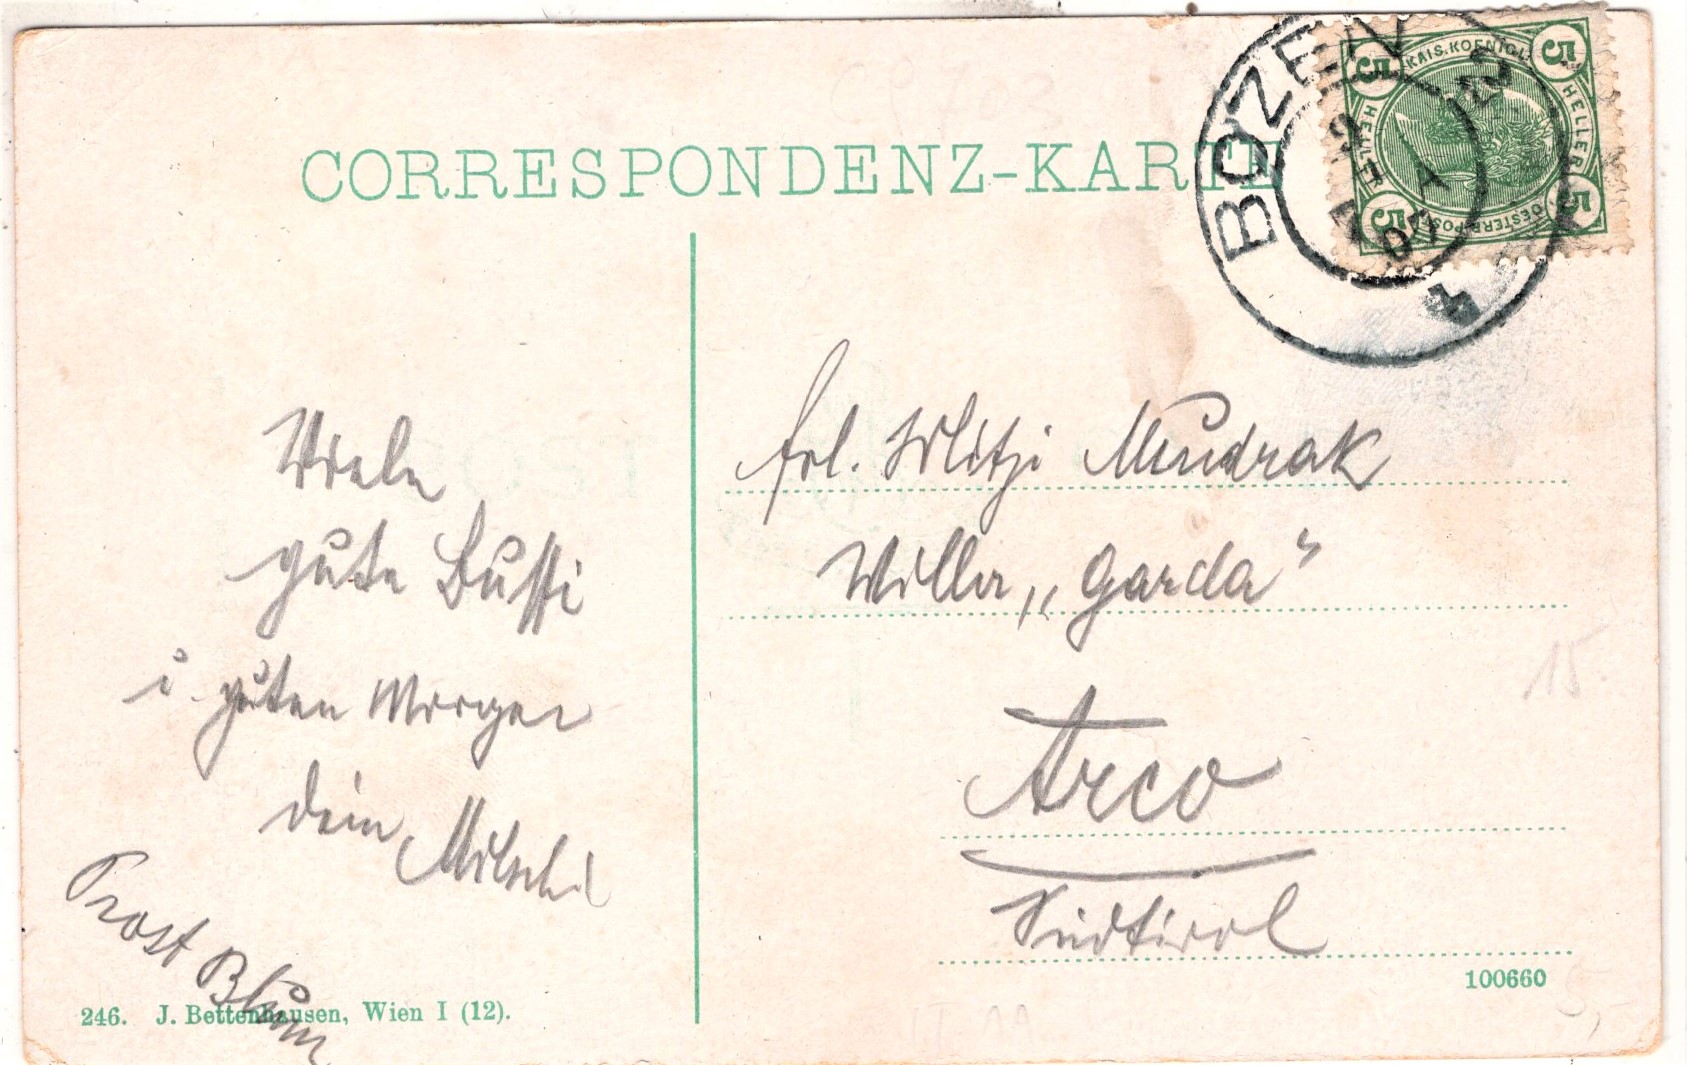 CORRESPONDENZ-KARTE
BOZEN
4
KAIS. KOENIGL.
5 5
HELLER HELLER
5 5
OESTERR. POST
Viele
gute Bussi
u. guten Morgen
dein
Prost Blum
Frl. Mitzi Mudrak
Villa „Garda“
Arco
Südtirol
15.
100660
5,-
246. J. Bettenhausen, Wien I (12).